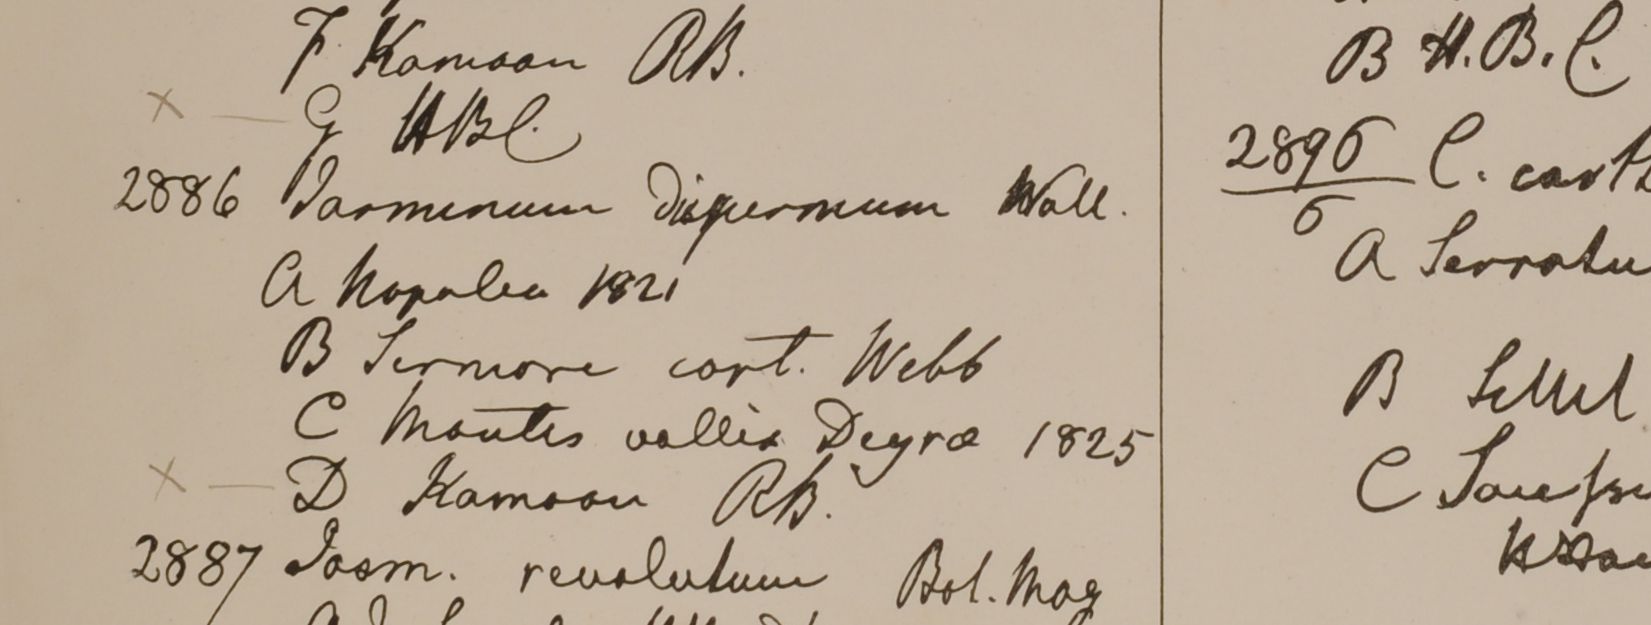 F. Kamaon RB.
× — G HBC.
2886 Jasminum dispermum Wall.
A Napalea 1821
B Sirmore cort. Webb
C Montes vallis Deyræ 1825
× — D Kamaon RB.
2887 Jasm. revolutum Bot. Mag
B H.B.C.
2896 C.
6
A Serratu
B
C